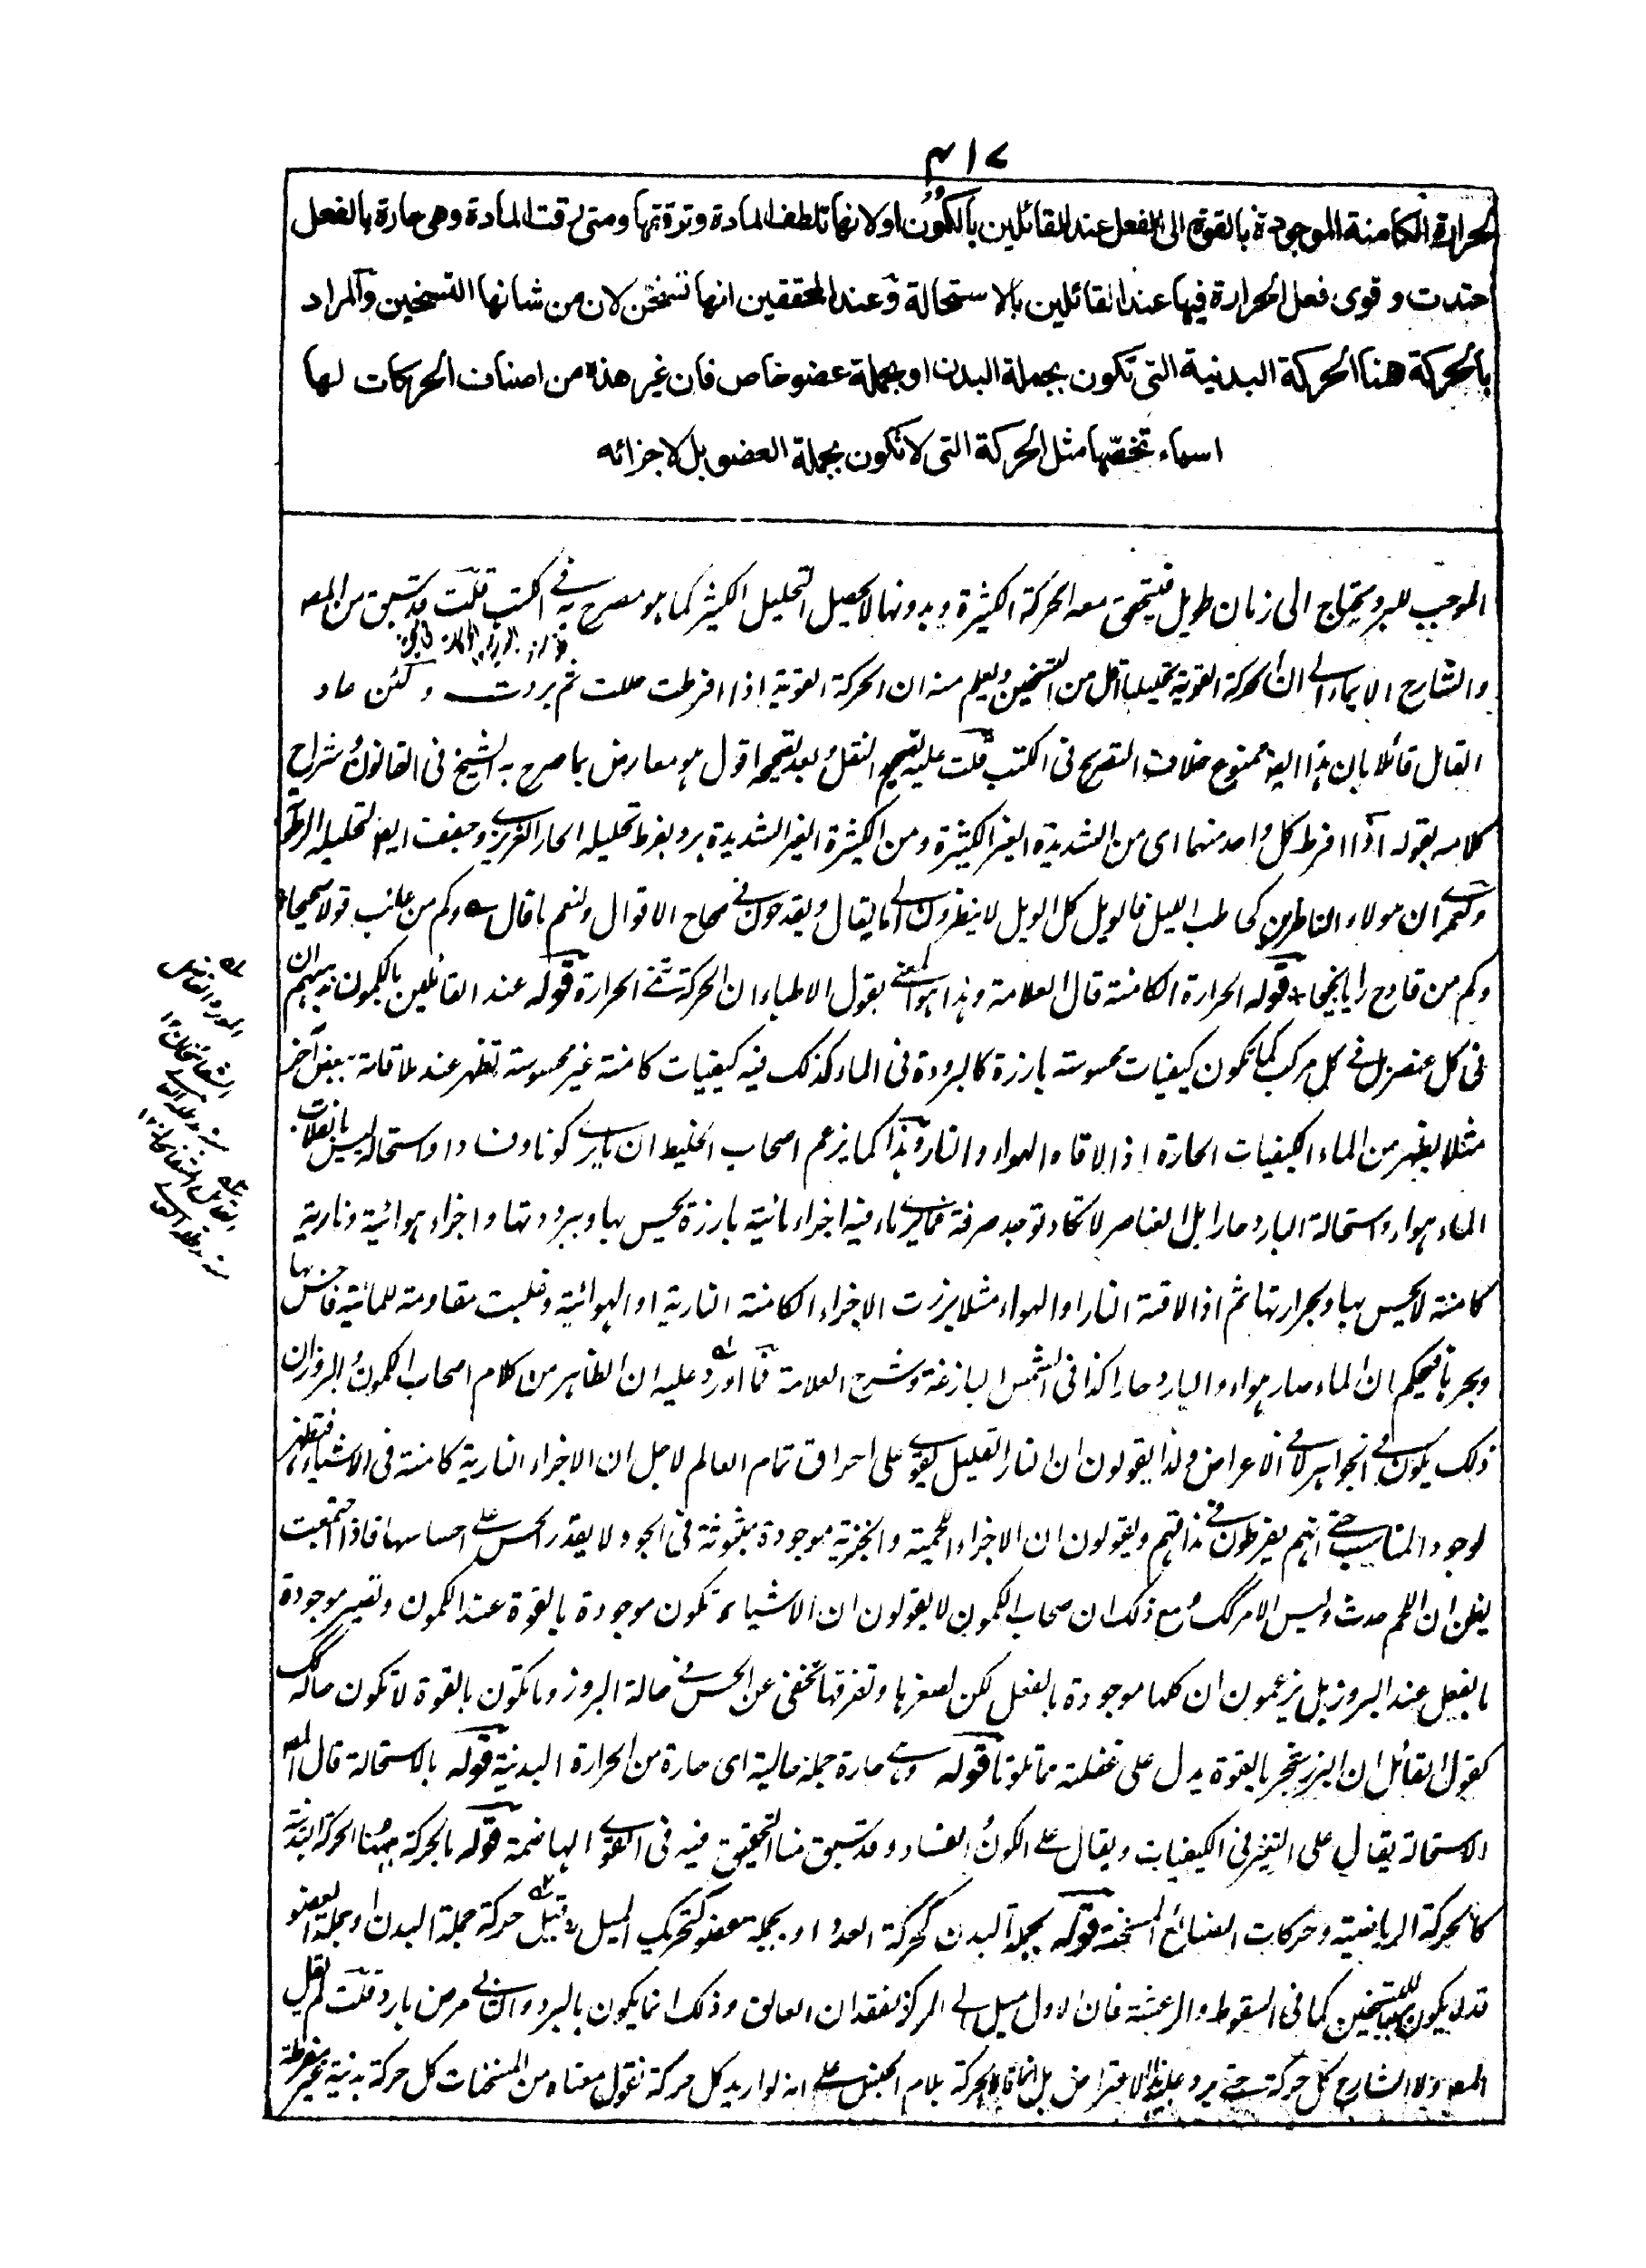 ٤١٧
الحرارة الكامنة الموجودة بالقوة الى الفعل عند القائلين بالكمون او لانها تلطف المادة وترققها ومتى رقت المادة وهى حارة بالفعل
احتدت وقوى فعل الحرارة فيها عند القائلين بالاستحالة وعند المحققين انها تسخن لان من شانها التسخين والمراد
بالحركة هنا الحركة البدنية التى تكون بجملة البدن او بجملة عضو خاص فان غير هذه من اصناف الحركات لها
اسماء تخصّها مثل الحركة التى لا تكون بجملة العضو بل لاجزائه
الموجب للبرد يحتاج الى زمان طويل فيتحقق معه الحركة الكثيرة وبدونها لا يحصل التحليل الكثير كما هو مصرح به فى الكتب قلت قد سبق من المصـ
والشارح الايماء الى ان الحركة القوية تحليلها اقل من التسخين ويعلم منه ان الحركة القوية اذا افرطت حللت ثم بردت ولئن عاد
القائل قائلا بان هذا ايضا ممنوع خلاف التصريح فى الكتب قلت عليه تصحيح النقل وبعد تصحيحه اقول هو معارض بما صرح به الشيخ فى القانون وشراح
كلامه بقوله اذا افرط كل واحد منهما اى من الشديدة الغير الكثيرة ومن الكثيرة الغير الشديدة برد بفرط تحليله الحار الغريزى وجفف ايضا لتحليله الرطوبة
ولعمرى ان هؤلاء الناظرين كحاطب الليل فالويل كل الويل لا ينظرون الى ما يقال ويقدحون فى صحاح الاقوال ولنعم ما قال وكم من عائب قولا صحيحا
وكم من قادح رايا نجيحا قوله الحرارة الكامنة قال العلامة وهذا هو المعنى بقول الاطباء ان الحركة تثير الحرارة قوله عند القائلين بالكمون مذهبهم ان
فى كل عنصر بل فى كل مركب كما تكون كيفيات محسوسة بارزة كالبرودة فى الماء كذلك فيه كيفيات كامنة غير محسوسة تظهر عند ملاقاته ببعض آخر
مثلا يظهر من الماء الكيفيات الحارة اذا لاقاه الهواء والنار وهذا كما يزعم اصحاب الخليط ان ما يرى كونا وفسادا واستحالة ليس بانقلاب
الماء هواء واستحالة البارد حارا بل العناصر لا تكاد توجد صرفة فما يرى ماء فيه اجزاء مائية بارزة يحس بها وببرودتها واجزاء هوائية ونارية
كامنة لا يحس بها وبحرارتها ثم اذا لاقته النار او الهواء مثلا برزت الاجزاء الكامنة النارية او الهوائية وغلبت مقاومة للمائية فاحس بها
وبحرها فيحكم ان الماء صار هواء والبارد حارا كذا فى الشمس البازغة وشرح العلامة فما اورد عليه ان الظاهر من كلام اصحاب الكمون والبروز ان
ذلك يكون فى الجواهر لا فى الاعراض ولذا يقولون ان النار القليل يقوى على احراق تمام العالم لاجل ان الاجزاء النارية كامنة فى الاشياء فتظهر
لوجود المناسب حتى انهم يفرطون فى مذاقهم ويقولون ان الاجزاء اللحمية والخبزية موجودة مبثوثة فى الجو ولا يقدر الحس على احساسها فاذا اجتمعت
يظن ان اللحم حدث وليس الامر كك ومع ذلك ان صحاب الكمون لا يقولون ان الاشياء تكون موجودة بالقوة عند الكمون وتصير موجودة
بالفعل عند البروز بل يزعمون ان كلها موجودة بالفعل لكن لصغرها وتفرقها تخفى عن الحس فى حالة البروز وما تكون بالقوة لا تكون حاله كك
كقول القائل ان البزر شجر بالقوة يدل على غفلته مما تلونا قوله وهى حارة جملة حالية اى حارة من الحرارة البدنية قوله بالاستحالة قال المصـ
الاستحالة يقال على التغير فى الكيفيات ويقال على الكون والفساد وقد سبق منا التحقيق فيه فى القوى الهاضمة قوله بالحركة ههنا الحركة البدنية
كالحركة الرياضية وحركات الصنائع المسخنة قوله بجملة البدن كحركة العدو او بجملة عضو كتحريك الميل قيل حركة جملة البدن او جملة العضو
قد لا يكون للتسخين كما فى السقوط والرعشة فان الاول ميل الى المركز لفقدان العائق وذلك انما يكون بالبرد والثانى مرض بارد قلت لم يقل
المصـ ولا الشارح كل حركة حتى يرد عليه هذا الاعتراض بل انما قالا الحركة بلام الجنس على انه لو اريد كل حركة نقول معناه من المسخنات كل حركة بدنية غير مفرطة